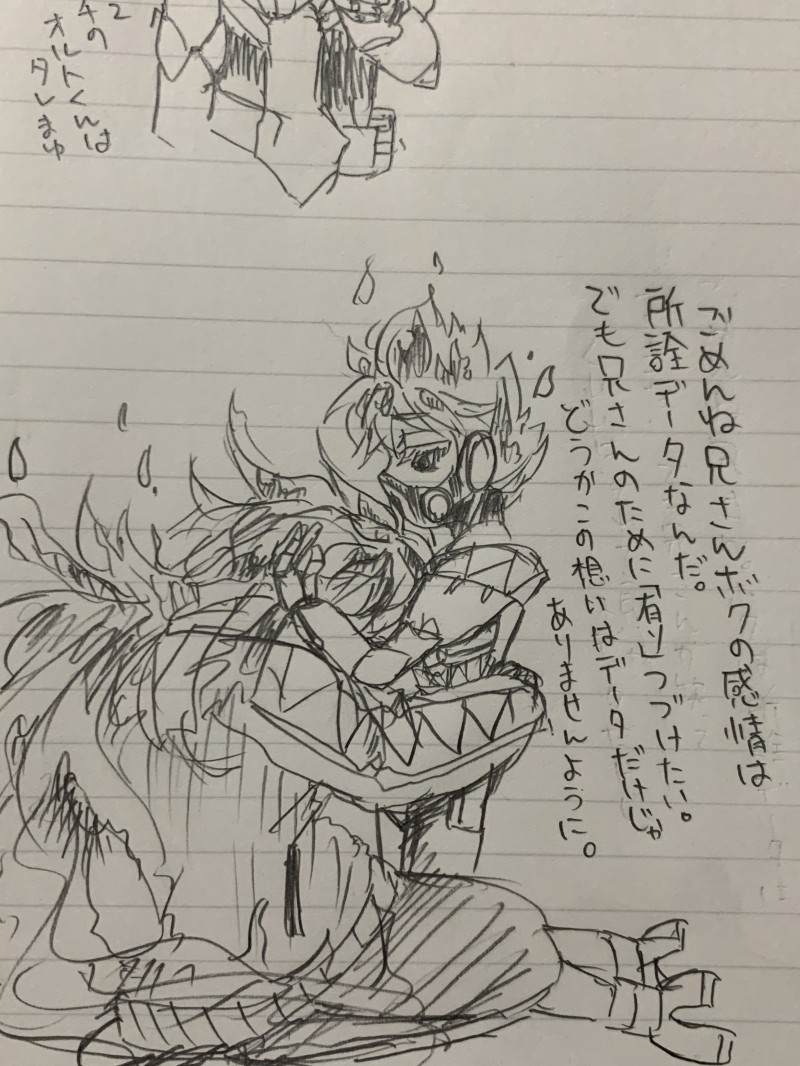 チの
オルトくんは
タレまゆ
ごめんね兄さんボクの感情は
所詮データなんだ。
でも兄さんのために「有」りつづけたい。
どうかこの想いはデータだけじゃ
ありませんように。